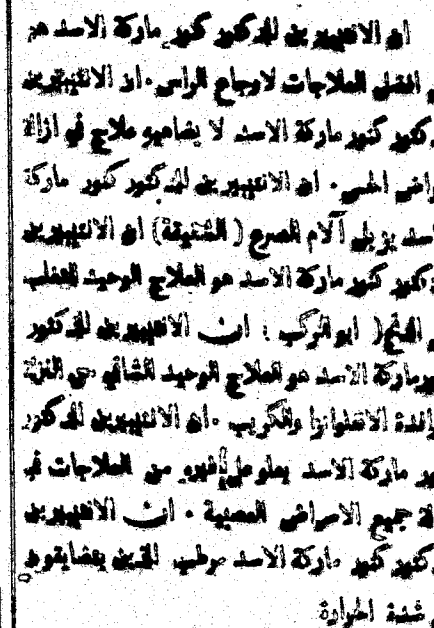 ان الانتيبيرين للدكتور كنور ماركة الاسد هو
افضل العلاجات لاوجاع الراس . ان الانتيبيرين
دكتور كنور ماركة الاسد لا يضاهيه علاج في ازالة
راض الحمى . ان الانتيبيرين للدكتور كنور ماركة
اسد يزيل آلام الصرع ( الشقيقة ) ان الانتيبيرين
دكتور كنور ماركة الاسد هو العلاج الوحيد
( ابو الركب ) : ان الانتيبيرين للدكتور
ماركة الاسد هو العلاج الوحيد الشافي من النزلة
الوافدة الانفلونزا والكريب . ان الانتيبيرين للدكتور
ماركة الاسد يعلو على غيره من العلاجات في
جميع الامراض العصبية . ان الانتيبيرين
دكتور كنور ماركة الاسد مرطب للذين يتضايقون
شدة الحرارة